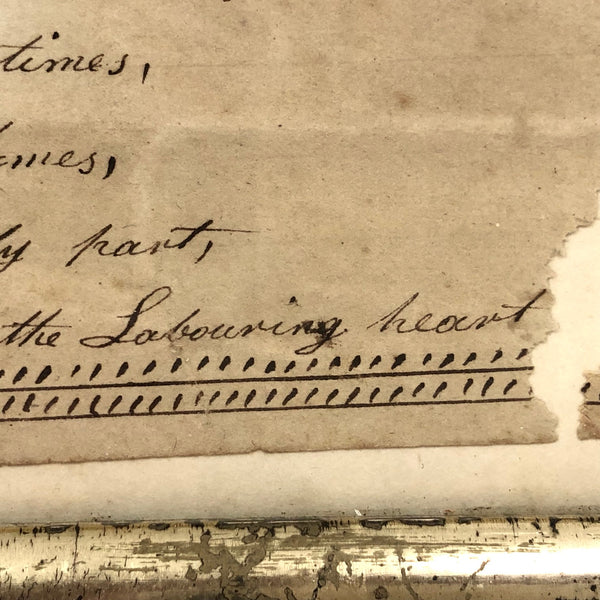 times,
times,
ly part,
the Labouring heart